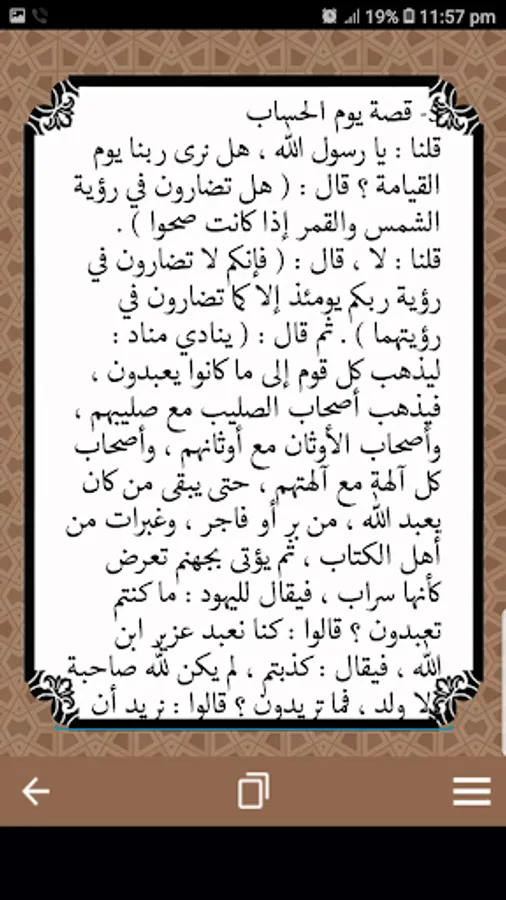 19% 11:57 pm
- قصة يوم الحساب
قلنا : يا رسول الله ، هل نرى ربنا يوم
القيامة ؟ قال : ( هل تضارون في رؤية
الشمس والقمر إذا كانت صحوا ) .
قلنا : لا ، قال : ( فإنكم لا تضارون في
رؤية ربكم يومئذ إلا كما تضارون في
رؤيتهما ) . ثم قال : ( ينادي مناد :
ليذهب كل قوم إلى ما كانوا يعبدون ،
فيذهب أصحاب الصليب مع صليبهم ،
وأصحاب الأوثان مع أوثانهم ، وأصحاب
كل آلهة مع آلهتهم ، حتى يبقى من كان
يعبد الله ، من بر أو فاجر ، وغبرات من
أهل الكتاب ، ثم يؤتى بجهنم تعرض
كأنها سراب ، فيقال لليهود : ما كنتم
تعبدون ؟ قالوا : كنا نعبد عزير ابن
الله ، فيقال : كذبتم ، لم يكن لله صاحبة
ولا ولد ، فما تريدون ؟ قالوا : نريد أن